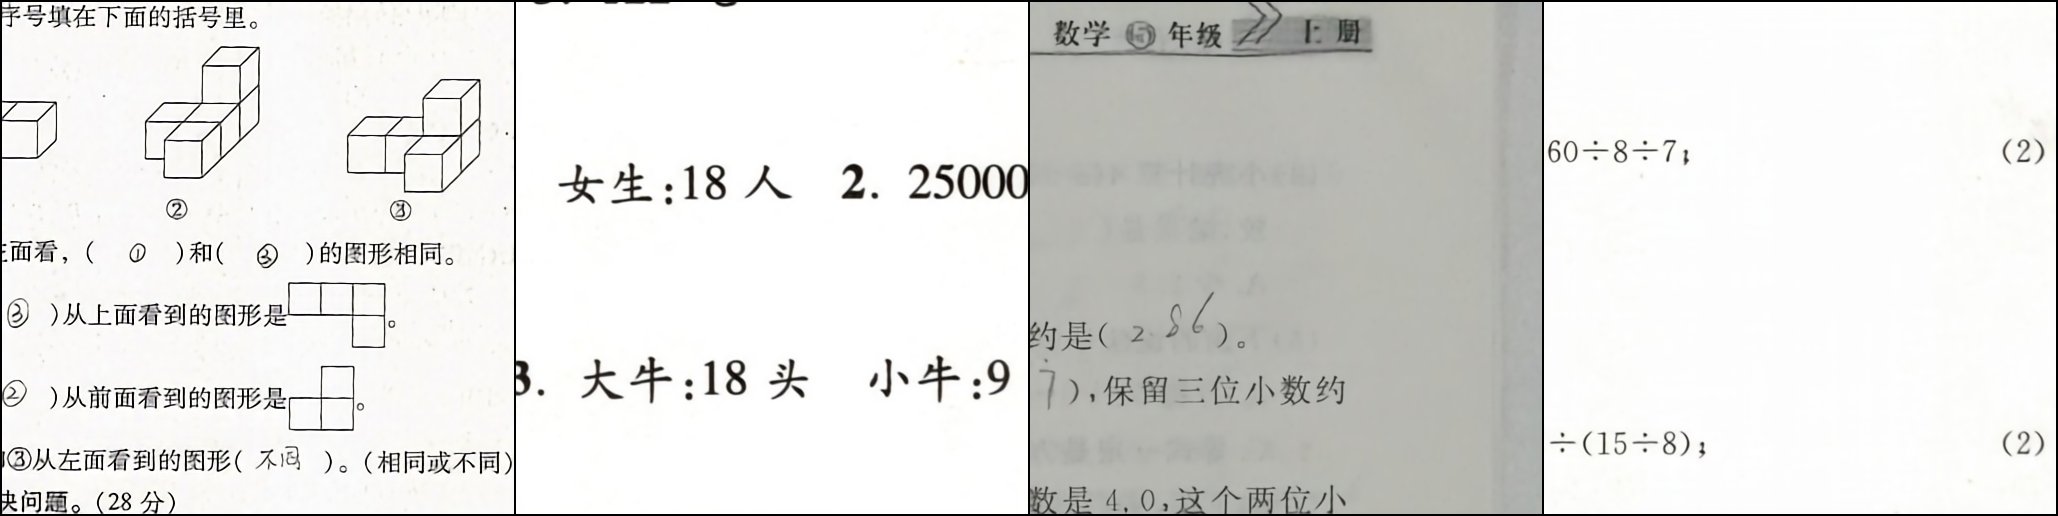 序号填在下面的括号里。
② ③
面看，( ① )和( ③ )的图形相同。
③ )从上面看到的图形是 。
② )从前面看到的图形是 。
③从左面看到的图形( 不同 )。(相同或不同)
问题。(28 分)
女生:18 人 2. 25000
3. 大牛:18 头 小牛:9
数学 年级 上 册
约是( 2.86 )。
7 ),保留三位小数约
数是 4.0,这个两位小
60÷8÷7; (2)
÷(15÷8); (2)